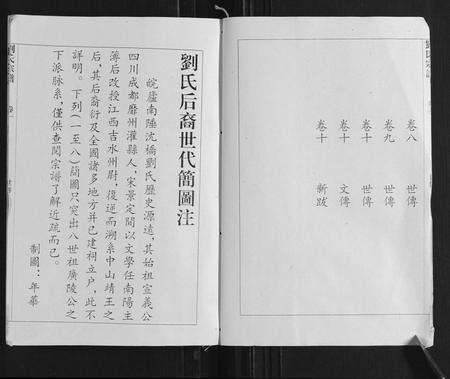 劉氏宗譜
卷八　世傳
卷九　世傳
卷十　世傳
卷十　文傳
卷十　新跋
劉氏后裔世代簡圖注
皖廬南陲沈橋劉氏歷史源遠，其始祖宣義公
四川成都靡州灌縣人，宋景定間以文學任南陽主
簿后改授江西吉水州尉，復逆而溯系中山靖王之
后，其后裔衍及全國諸多地方并已建祠立户，此不
詳明。下列(一至八)蕳圖只突出八世祖廣陵公之
下派脉系，僅供查閲宗譜了解近疏而已。
制圖：年華
劉氏宗譜
卷一